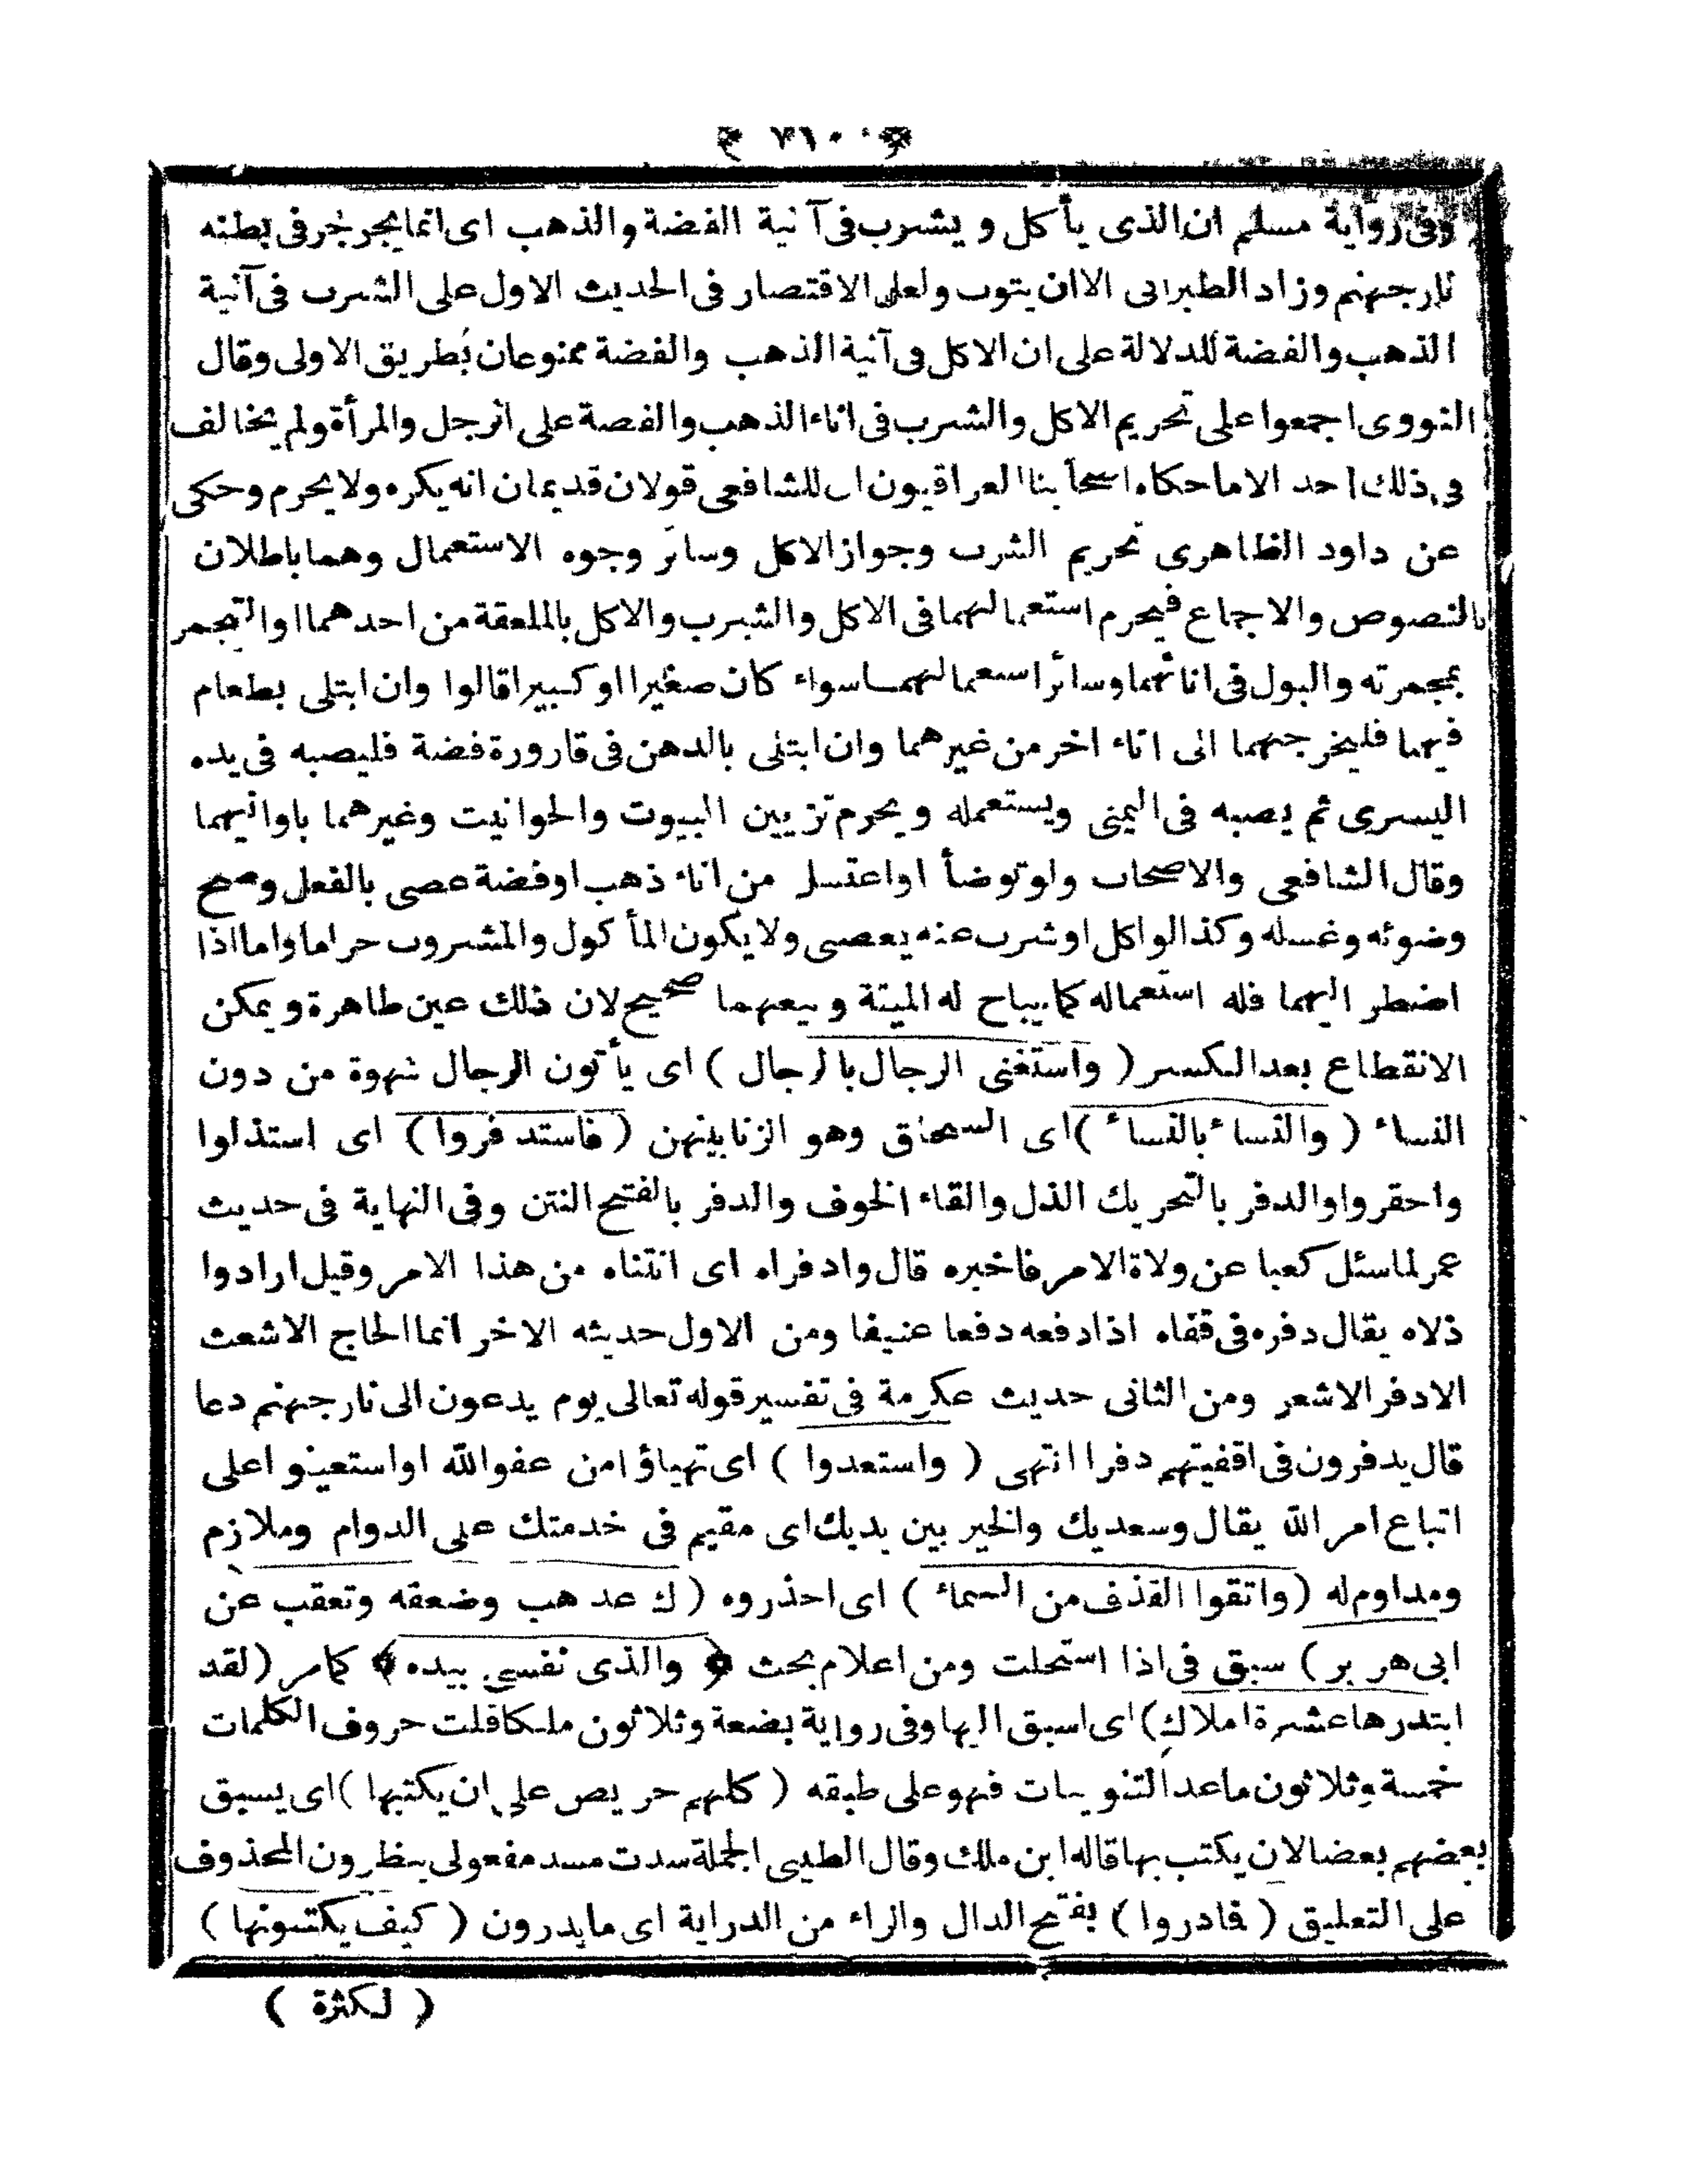 ٧٦٠
وفى رواية مسلم ان الذى يأكل ويشرب فى آنية الفضة والذهب اى انما يجرجر فى بطنه
نار جهنم وزاد الطبرانى الا ان يتوب ولعل الاقتصار فى الحديث الاول على الشرب فى آنية
الذهب والفضة للدلالة على ان الاكل فى آنية الذهب والفضة ممنوعان بطريق الاولى وقال
النووى اجمعوا على تحريم الاكل والشرب فى اناء الذهب والفضة على الرجل والمرأة ولم يخالف
فى ذلك احد الا ما حكاه اصحابنا العراقيون ان للشافعى قولان قديمان انه يكره ولا يحرم وحكى
عن داود الظاهرى تحريم الشرب وجواز الاكل وسائر وجوه الاستعمال وهما باطلان
بالنصوص والاجماع فيحرم استعمالهما فى الاكل والشرب والاكل بالملعقة من احدهما او التجمر
بمجمرته والبول فى انائهما وسائر استعمالهما سواء كان صغيرا او كبيرا قالوا وان ابتلى بطعام
فيهما فليخرجهما الى اناء اخر من غيرهما وان ابتلى بالدهن فى قارورة فضة فليصبه فى يده
اليسرى ثم يصبه فى اليمنى ويستعمله ويحرم تزيين البيوت والحوانيت وغيرهما باوانيهما
وقال الشافعى والاصحاب ولو توضأ او اغتسل من اناء ذهب او فضة عصى بالفعل وصح
وضوئه وغسله وكذا لو اكل او شرب عنه يعصى ولا يكون المأكول والمشروب حراما واما اذا
اضطر اليهما فله استعماله كما يباح له الميتة وبيعهما صحيح لان ذلك عين طاهرة ويمكن
الانقطاع بعد الكسر ( واستغنى الرجال بالرجال ) اى يأتون الرجال شهوة من دون
النساء ( والنساء بالنساء ) اى السحاق وهو الزنا بينهن ( فاستدفروا ) اى استذلوا
واحقروا والدفر بالتحريك الذل والقاء الخوف والدفر بالفتح النتن وفى النهاية فى حديث
عمر لما سئل كعبا عن ولاة الامر فاخبره قال وادفراه اى انتناه من هذا الامر وقيل ارادوا
ذلاه يقال دفره فى قفاه اذا دفعه دفعا عنيفا ومن الاول حديثه الاخر انما الحاج الاشعث
الادفر الاشعر ومن الثانى حديث عكرمة فى تفسير قوله تعالى يوم يدعون الى نار جهنم دعا
قال يدفرون فى اقفيتهم دفرا انتهى ( واستعدوا ) اى تهياؤا من عفو الله او استعينو اعلى
اتباع امر الله يقال وسعديك والخير بين يديك اى مقيم فى خدمتك على الدوام وملازم
ومداوم له ( واتقوا القذف من السماء ) اى احذروه ( ك عد هب وضعقه وتعقب عن
ابى هرير ) سبق فى اذا استحلت ومن اعلام بحث ﴿ والذى نفسى بيده ﴾ كمامر ( لقد
ابتدرها عشرة املاك ) اى اسبق اليها وفى رواية بضعة وثلاثون ملكا قلت حروف الكلمات
خمسة وثلاثون ما عدا التنوينات فهو على طبقه ( كلهم حريص على ان يكتبها ) اى يسبق
بعضهم بعضا لان يكتب بها قاله ابن ملك وقال الطيبى الجملة سدت مسد مفعولى ينظرون المحذوف
على التعليق ( فادروا ) بفتح الدال والراء من الدراية اى ما يدرون ( كيف يكتبونها )
( لكثرة )